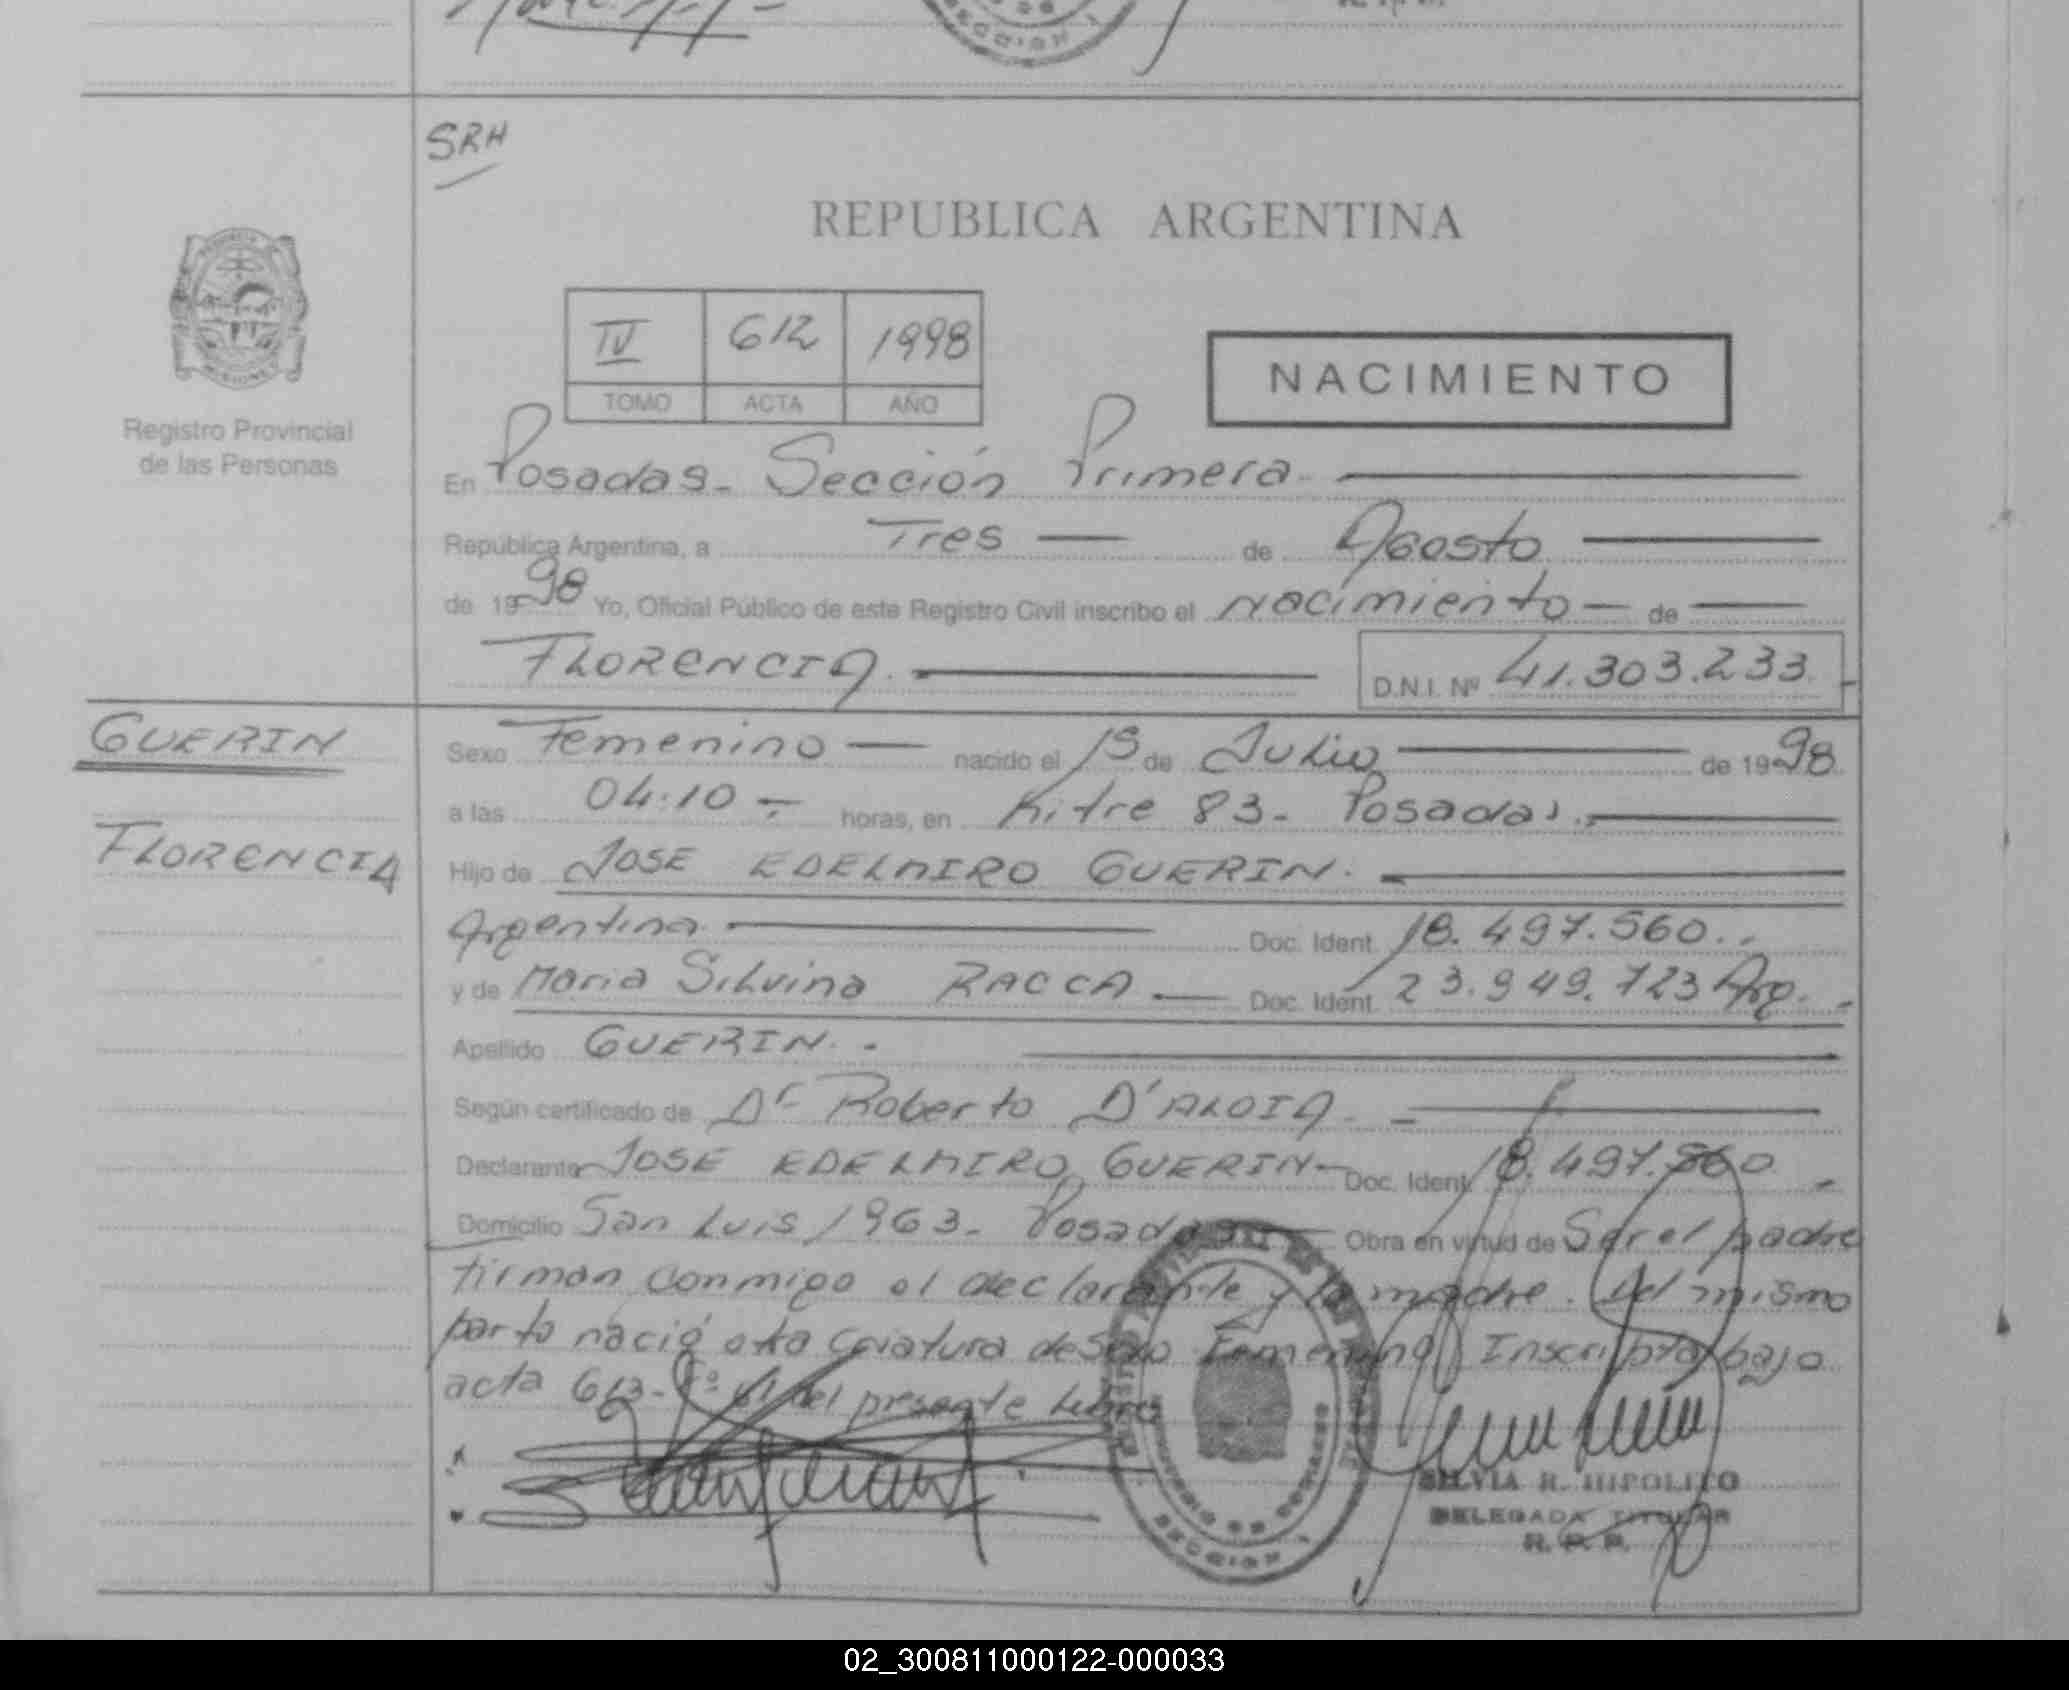 SRH
REPUBLICA ARGENTINA
IV 612 1998
TOMO ACTA AÑO
NACIMIENTO
Registro Provincial
de las Personas
En Posadas - Sección Primera
República Argentina, a Tres de Agosto
de 1998 Yo, Oficial Público de este Registro Civil inscribo el nacimiento de
FLORENCIA. D.N.I. Nº 41.303.233.
GUERIN
FLORENCIA
Sexo Femenino nacido el de Julio de 1998
a las 04:10 horas, en 83 - Posadas.
Hijo de JOSE EDELMIRO GUERIN.
Argentina Doc. Ident. 18.497.560.
y de Maria Silvina RACCA Doc. Ident. 23.949.723 Arg.
Apellido GUERIN.
Según certificado de Dr Roberto D'ALOIA.
Declarante JOSE EDELMIRO GUERIN Doc. Ident. 18.497.560
Domicilio San Luis 1963 - Posadas Obra en vitud de Ser el padre
firman conmigo el declarante y la madre. Del mismo
parto nació otra criatura de sexo Femenino Inscripta bajo
acta 613 - del presente Libro
SECCION 1
SILVIA R. HIPOLITO
DELEGADA TITULAR
R. P. P.
02_300811000122-000033